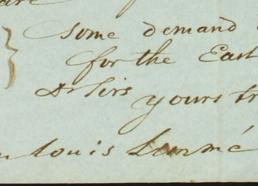 some demand
for the East
Dr Sirs
yours tr
Louis